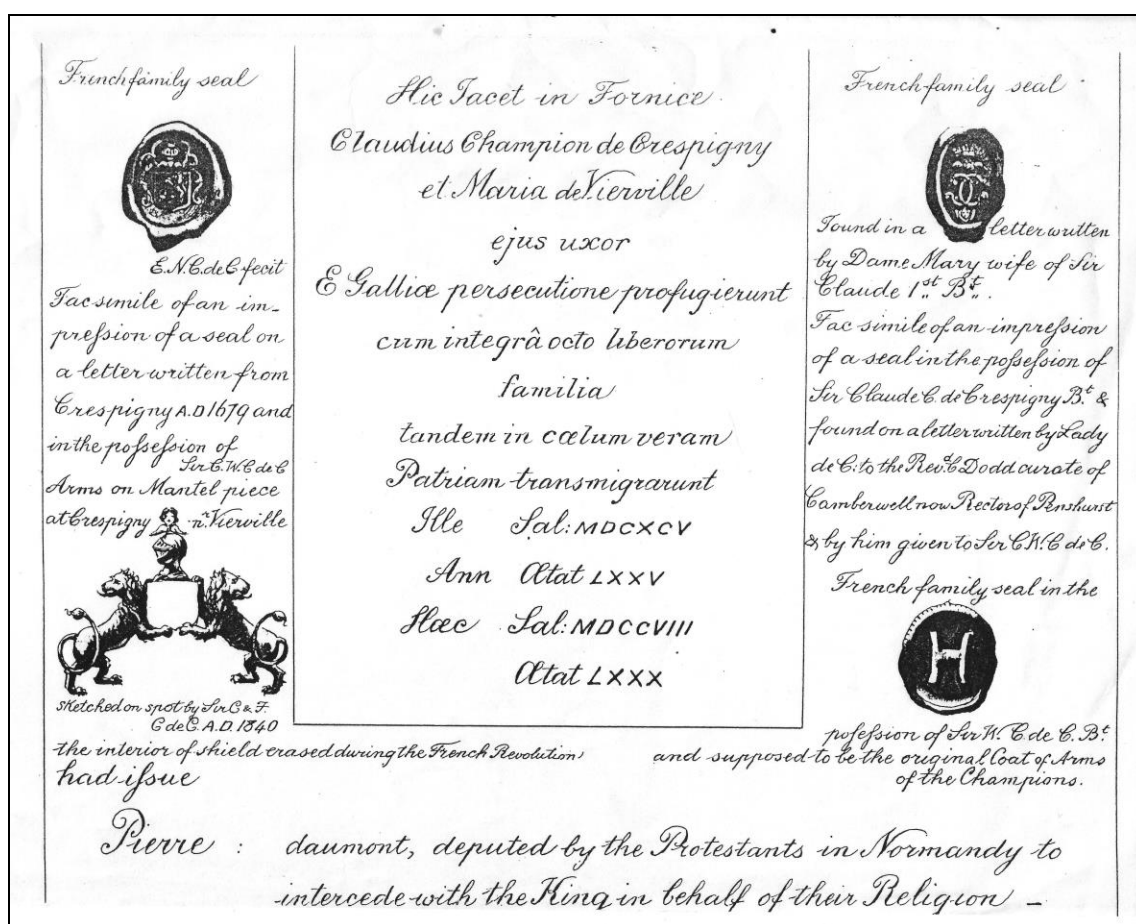 French family seal
E.N.C. de C fecit
Facsimile of an im-
pression of a seal on
a letter written from
Crespigny A.D 1679 and
in the possession of
Sir C. W. C de C
Arms on Mantel piece
at Crespigny nr. Vierville
sketched on spot by Sir C & F.
C de C. A.D. 1840
the interior of shield erased during the French Revolution
had issue
Hic Jacet in Fornice
Claudius Champion de Crespigny
et Maria de Vierville
ejus uxor
E Galliæ persecutione profugierunt
cum integrâ octo liberorum
familia
tandem in cœlum veram
Patriam transmigrarunt
Ille Sal: MDCXCV
Ann Ætat LXXV
Hæc Sal: MDCCVIII
Ætat LXXX
French family seal
Found in a letter written
by Dame Mary wife of Sir
Claude 1st Bt.
Fac simile of an impression
of a seal in the possession of
Sir Claude C. de Crespigny Bt. &
found on a letter written by Lady
de C: to the Revd. C Dodd curate of
Camberwell now Rector of Penshurst
& by him given to Sir C. W. C de C.
French family seal in the
H
possession of Sir W. C de C. Bt.
and supposed to be the original Coat of Arms
of the Champions.
Pierre : daumont, deputed by the Protestants in Normandy to
intercede with the King in behalf of their Religion –